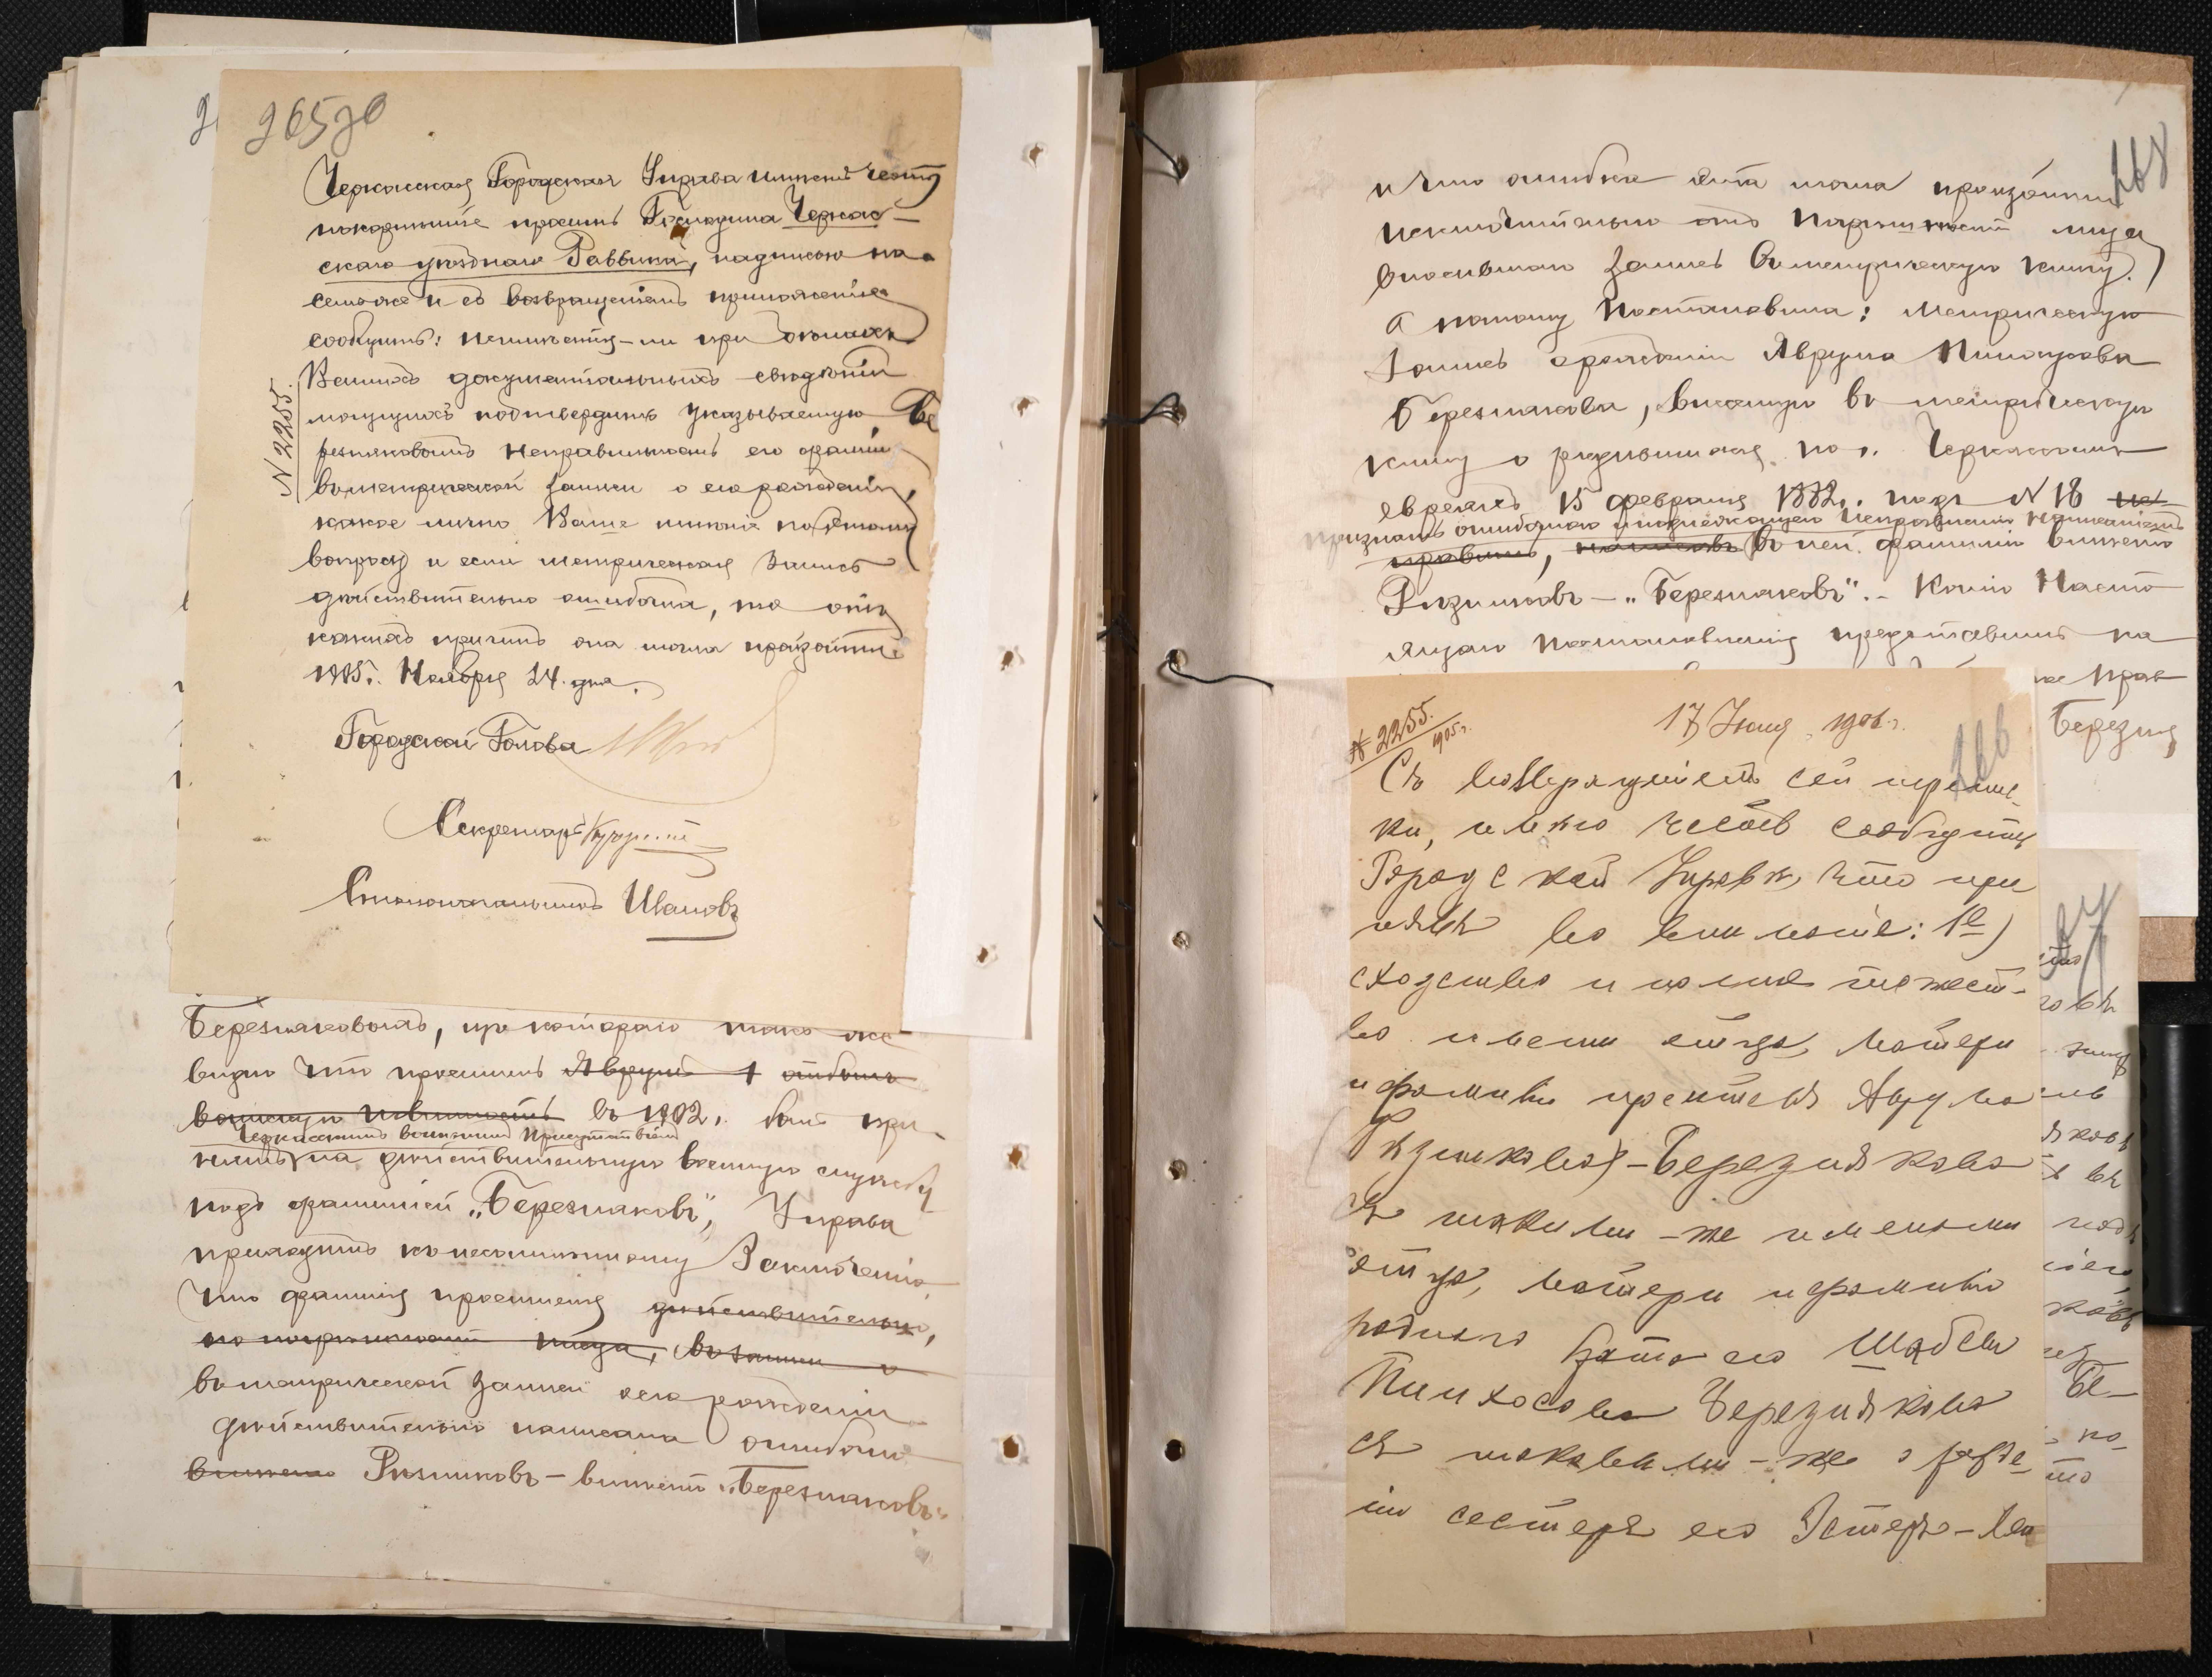 265 об
Черкасская Городская Управа имѣетъ честь
покорнѣйше просить Господина Черкас-
скаго уѣзднаго Раввина, надписью на
семъ-же и съ возвращеніемъ приложенія
сообщить: не имѣется-ли при дѣлахъ
Вашихъ документальныхъ свѣдѣній
могущихъ подтвердить указываемую Бе
резняковымъ неправильность его фамиліи
въ метрической записи о его рожденіи,
какое лично Ваше мнѣніе по этому
вопросу и если метрическая запись
дѣйствительно ошибочна, то отъ
какихъ причинъ она могла произойти
1905 г. Ноября 24 дня.
N 2255.
Городской Голова
Секретарь
Столоначальникъ Ивановъ
Березняковымъ, изъ котораго также
видно что проситель Яврумъ отбылъ
воинскую повинность въ 1902 г. былъ при-
Черкасскимъ воинскимъ Присутствіемъ
нятъ на дѣйствительную военную службу
подъ фамиліей „Березняковъ“, Управа
приходитъ къ несомнѣнному Заключенію,
что фамилія просителя дѣйствительно,
по погрѣшности лица, въ записи о
въ метрической записи о его рожденіи
дѣйствительно написана ошибочно
вмѣсто Рѣзниковъ – вмѣсто „Березняковъ“
268
и что ошибка эта могла произойти
исключительно отъ погрѣшности лица
вносившаго запись въ метрическую книгу.
А потому Постановила: метрическую
запись о рожденіи Яврума Пинхусова
Березнякова, внесенную въ метрическую
книгу о родившихся по г. Черкассамъ
евреяхъ 15 февраля 1882 г. подъ N 18
признать ошибочною и подлежащею исправленію написаніемъ
въ ней фамиліи вмѣсто
Рѣзниковъ – „Березняковъ“. – Копію Насто
ящаго постановленія представить на
Прав
Березня
N 2255.
1905 г.
17 Іюня 1906 г.
266
Съ возвращеніемъ сей перепис-
ки, имѣю честь сообщить
Городской Управѣ, что при
нявъ во вниманіе: 1е)
сходство и полное тожест-
во имени отца, матери
и фамиліи просителя Аврума
(Рѣзникова)-Березнякова
съ такими-же именами
отца, матери и фамиліи
роднаго брата его Шабсы
Пинхосова Березнякова
съ таковыми-же о рожде-
ніи сестеръ его Эстеръ-Леи
67